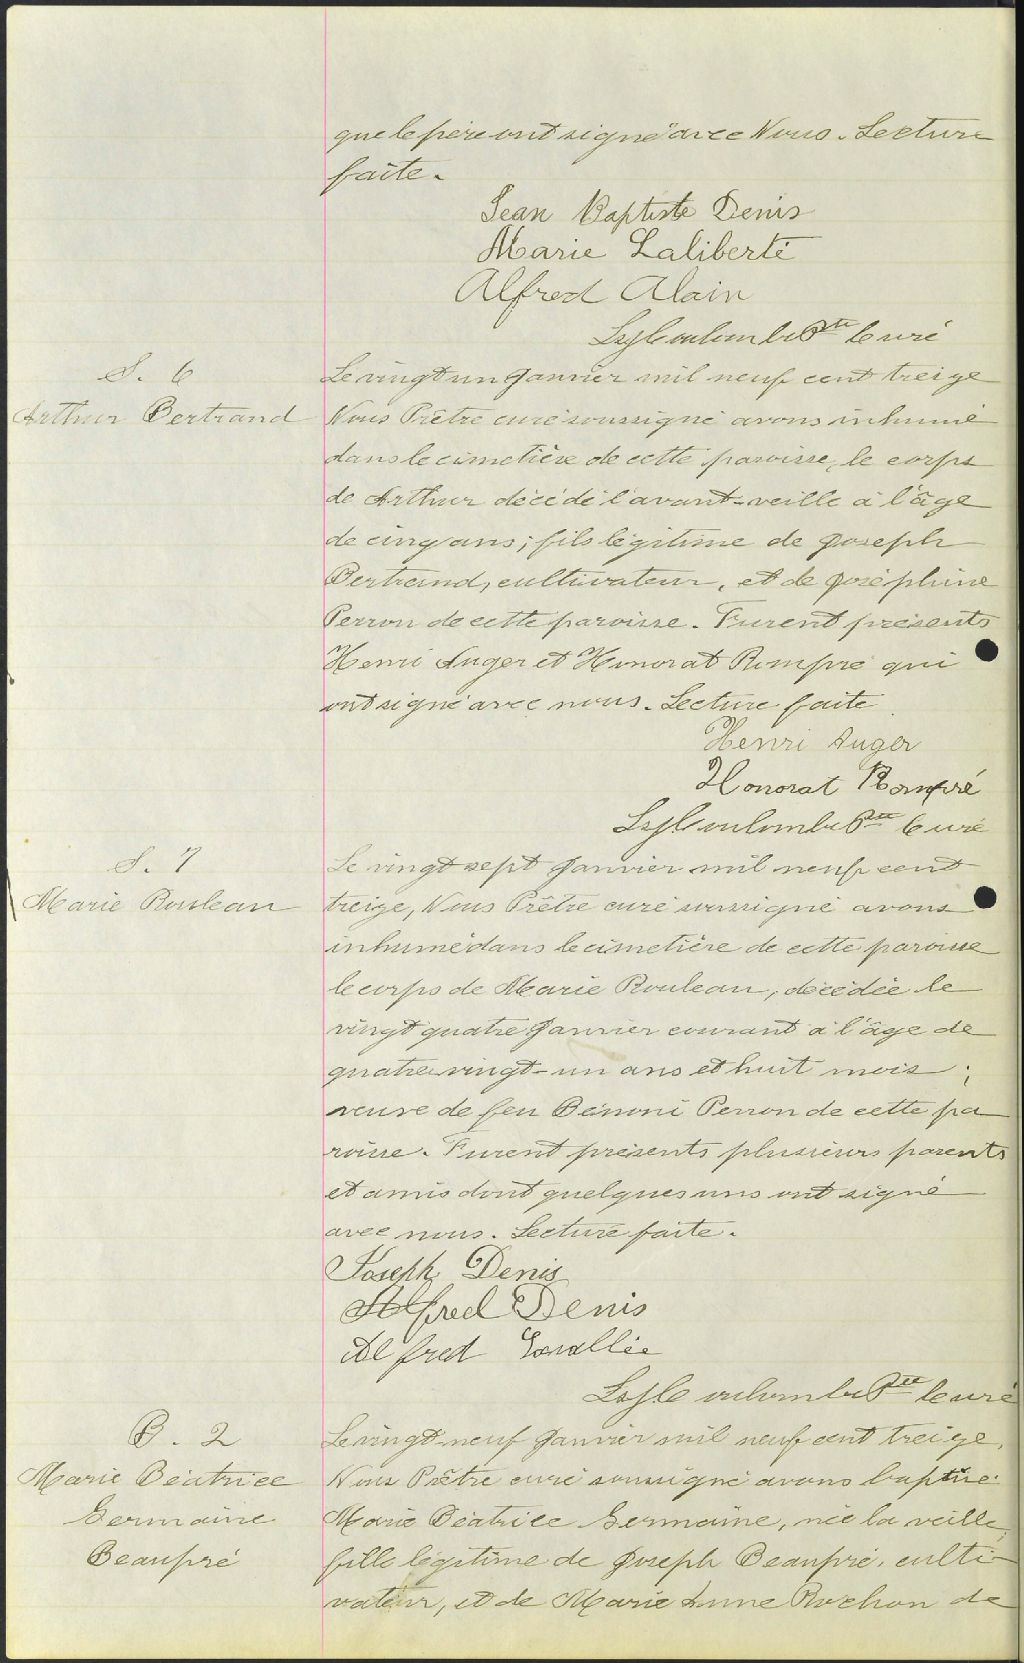 que le père ont signé avec Nous. Lecture
faite.
Jean Baptiste Denis
Marie Laliberté
Alfred Alain
Ptre Curé
S. 6
Arthur Bertrand
Le vingt un Janvier mil neuf cent treize
Nous Prêtre curé soussigné avons inhumé
dans le cimetière de cette paroisse, le corps
de Arthur décédé l'avant-veille à l'âge
de cinq ans; fils légitime de Joseph
Bertrand, cultivateur, et de Joséphine
Perron de cette paroisse. Furent présents
Henri Auger et Honorat Rompré qui
ont signé avec nous. Lecture faite
Henri Auger
Honorat Rompré
Ptre Curé
S. 7
Marie Rouleau
Le vingt sept Janvier mil neuf cent
treize, Nous Prêtre curé soussigné avons
inhumé dans le cimetière de cette paroisse
le corps de Marie Rouleau, décédée le
vingt quatre Janvier courant à l'âge de
quatre vingt-un ans et huit mois;
veuve de feu Bénoni Perron de cette pa
roisse. Furent présents plusieurs parents
et amis dont quelques uns ont signé
avec nous. Lecture faite.
Joseph Denis
Alfred Denis
Alfred Lavallée
Ptre Curé
B. 2
Marie Béatrice
Germaine
Beaupré
Le vingt-neuf Janvier mil neuf cent treize,
Nous Prêtre curé soussigné avons baptisé
Marie Béatrice Germaine, née la veille,
fille légitime de Joseph Beaupré, culti-
vateur, et de Marie Anne Rochon de